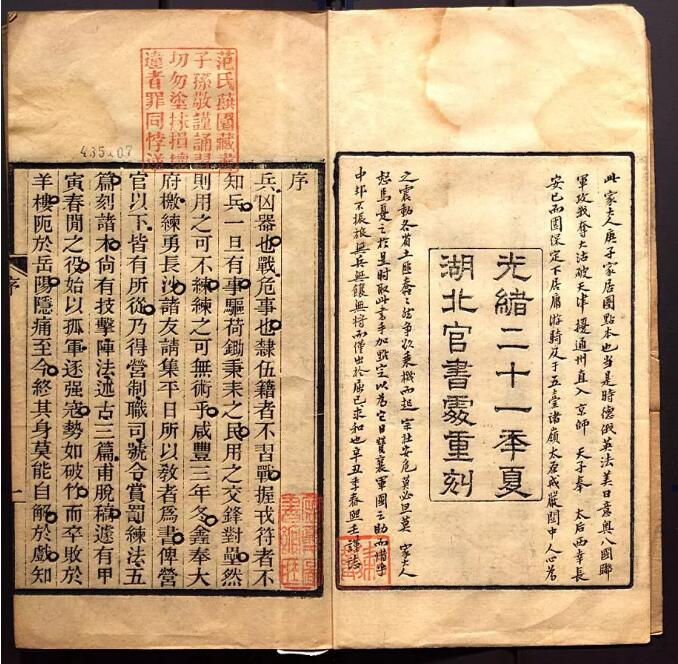 此 家大人庚子家居圈點本也当是時德俄英法美日意奧八國聯
軍攻我奪大沽破天津擾通州直入 京師 天子奉 太后西幸長
安已而圍保定下居庸游騎及于五臺諸嶺太原戒嚴中人心
光緒二十一季夏
湖北官書處重刻
之震動各省土匪然争欲乘機而起 宗社安危莫必旦莫 家大人
焉憂之於是时取此書手加點定以为它日贊襄軍國之助而惜乎
中不振旅無兵無餉無將而僅出於屈己求和也辛丑季春熙壬謹誌
范氏藏書
子孫敬謹誦習
切勿塗抹損壞
違者罪同悖逆
序
兵凶器也戰危事也隸伍籍者不習戰握戎符者不
知兵一旦有事驅荷鋤秉耒之民用之交鋒對壘然
則用之可不練練之可無術乎咸豐三年冬鑫奉大
府檄練勇長沙諸友請集平日所以教者爲書俾營
官以下皆有所從乃得營制職司號令賞罰練法五
篇刻諸木尙有技擊陣法述古三篇甫脫稿遽有甲
寅春閒之役始以孤軍逐强寇勢如破竹而卒敗於
羊樓阨於岳陽隱痛至今終其身莫能自解於戲知
序
一